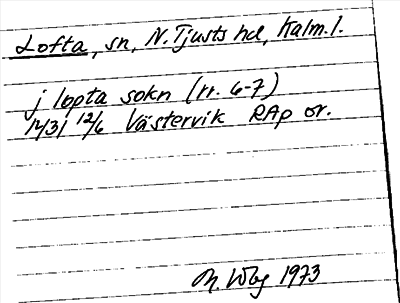 Lofta, sn, N. Tjusts hd, Kalm. l.
j lopta sokn (rr. 6-7)
1431 12/6 Västervik RAp or.
1973